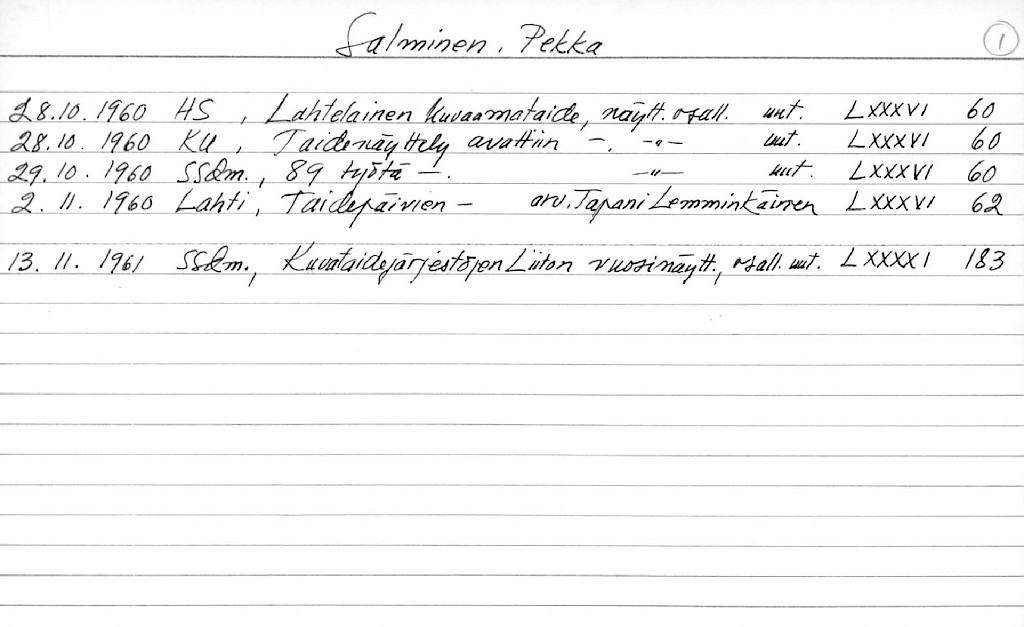 Salminen, Pekka 1
28.10.1960 HS, Lahtelainen kuvaamataide, näytt. osall. uut. LXXXVI 60
28.10.1960 KU, Taidenäyttely avattiin –. –"– uut. LXXXVI 60
29.10.1960 SSdm., 89 työtä –. –"– uut. LXXXVI 60
2.11.1960 Lahti, Taidepäivien – arv. Tapani Lemminkäinen LXXXVI 62
13.11.1961 SSdm., Kuvataidejärjestöjen Liiton vuosinäytt., osall. uut. LXXXXI 183